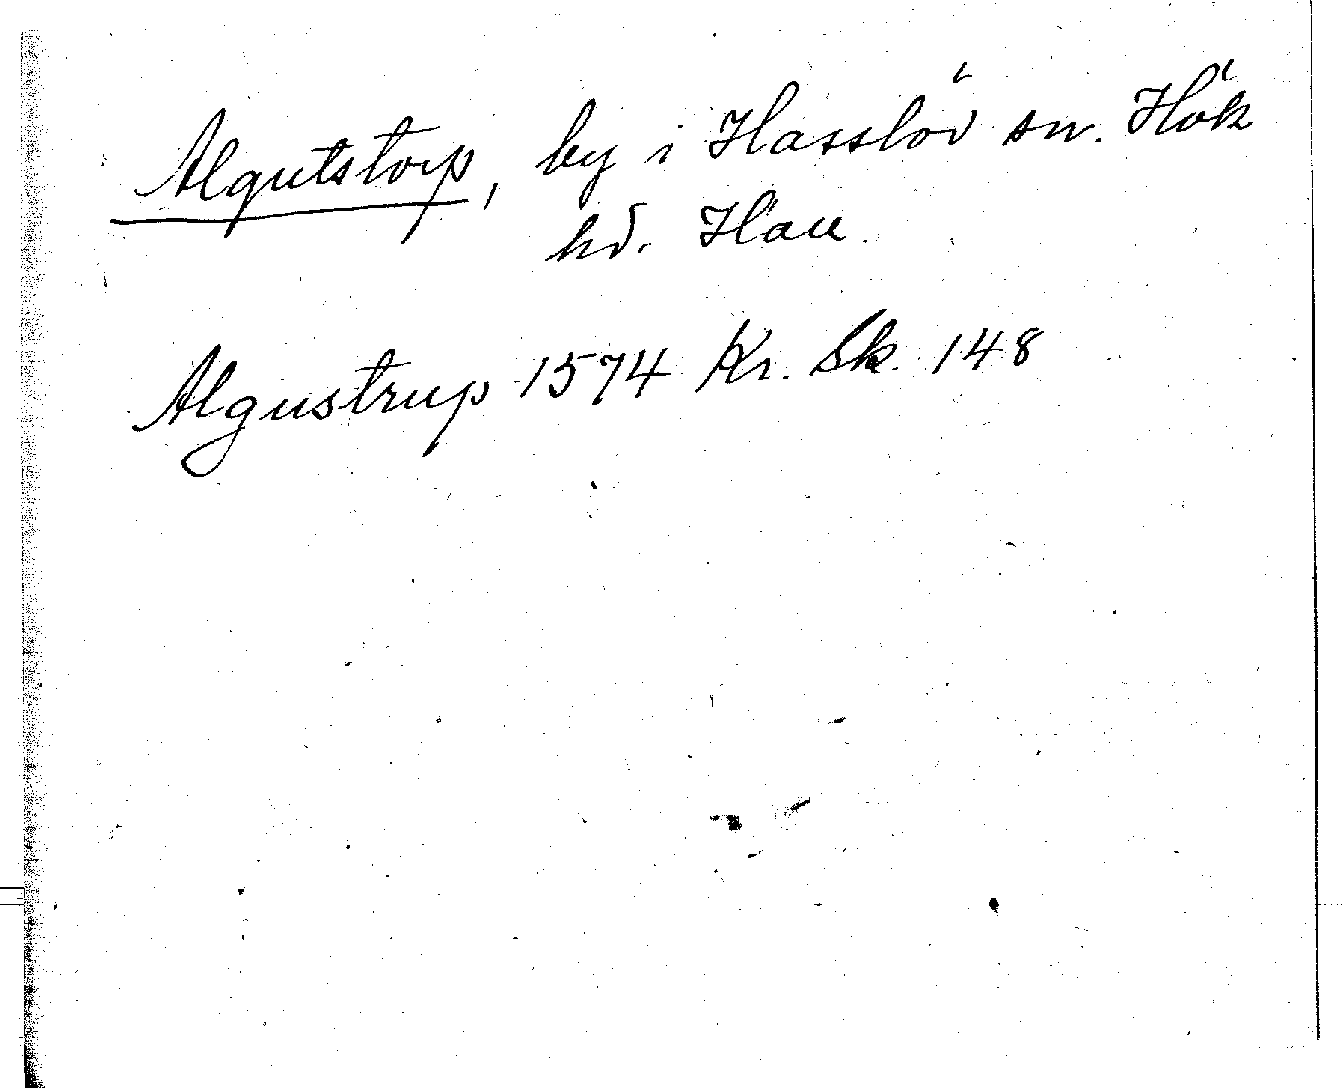 Algutstorp, by i Hasslöv sn. Hök
hd. Hall
Algustrup 1574 Kr. Sk. 148